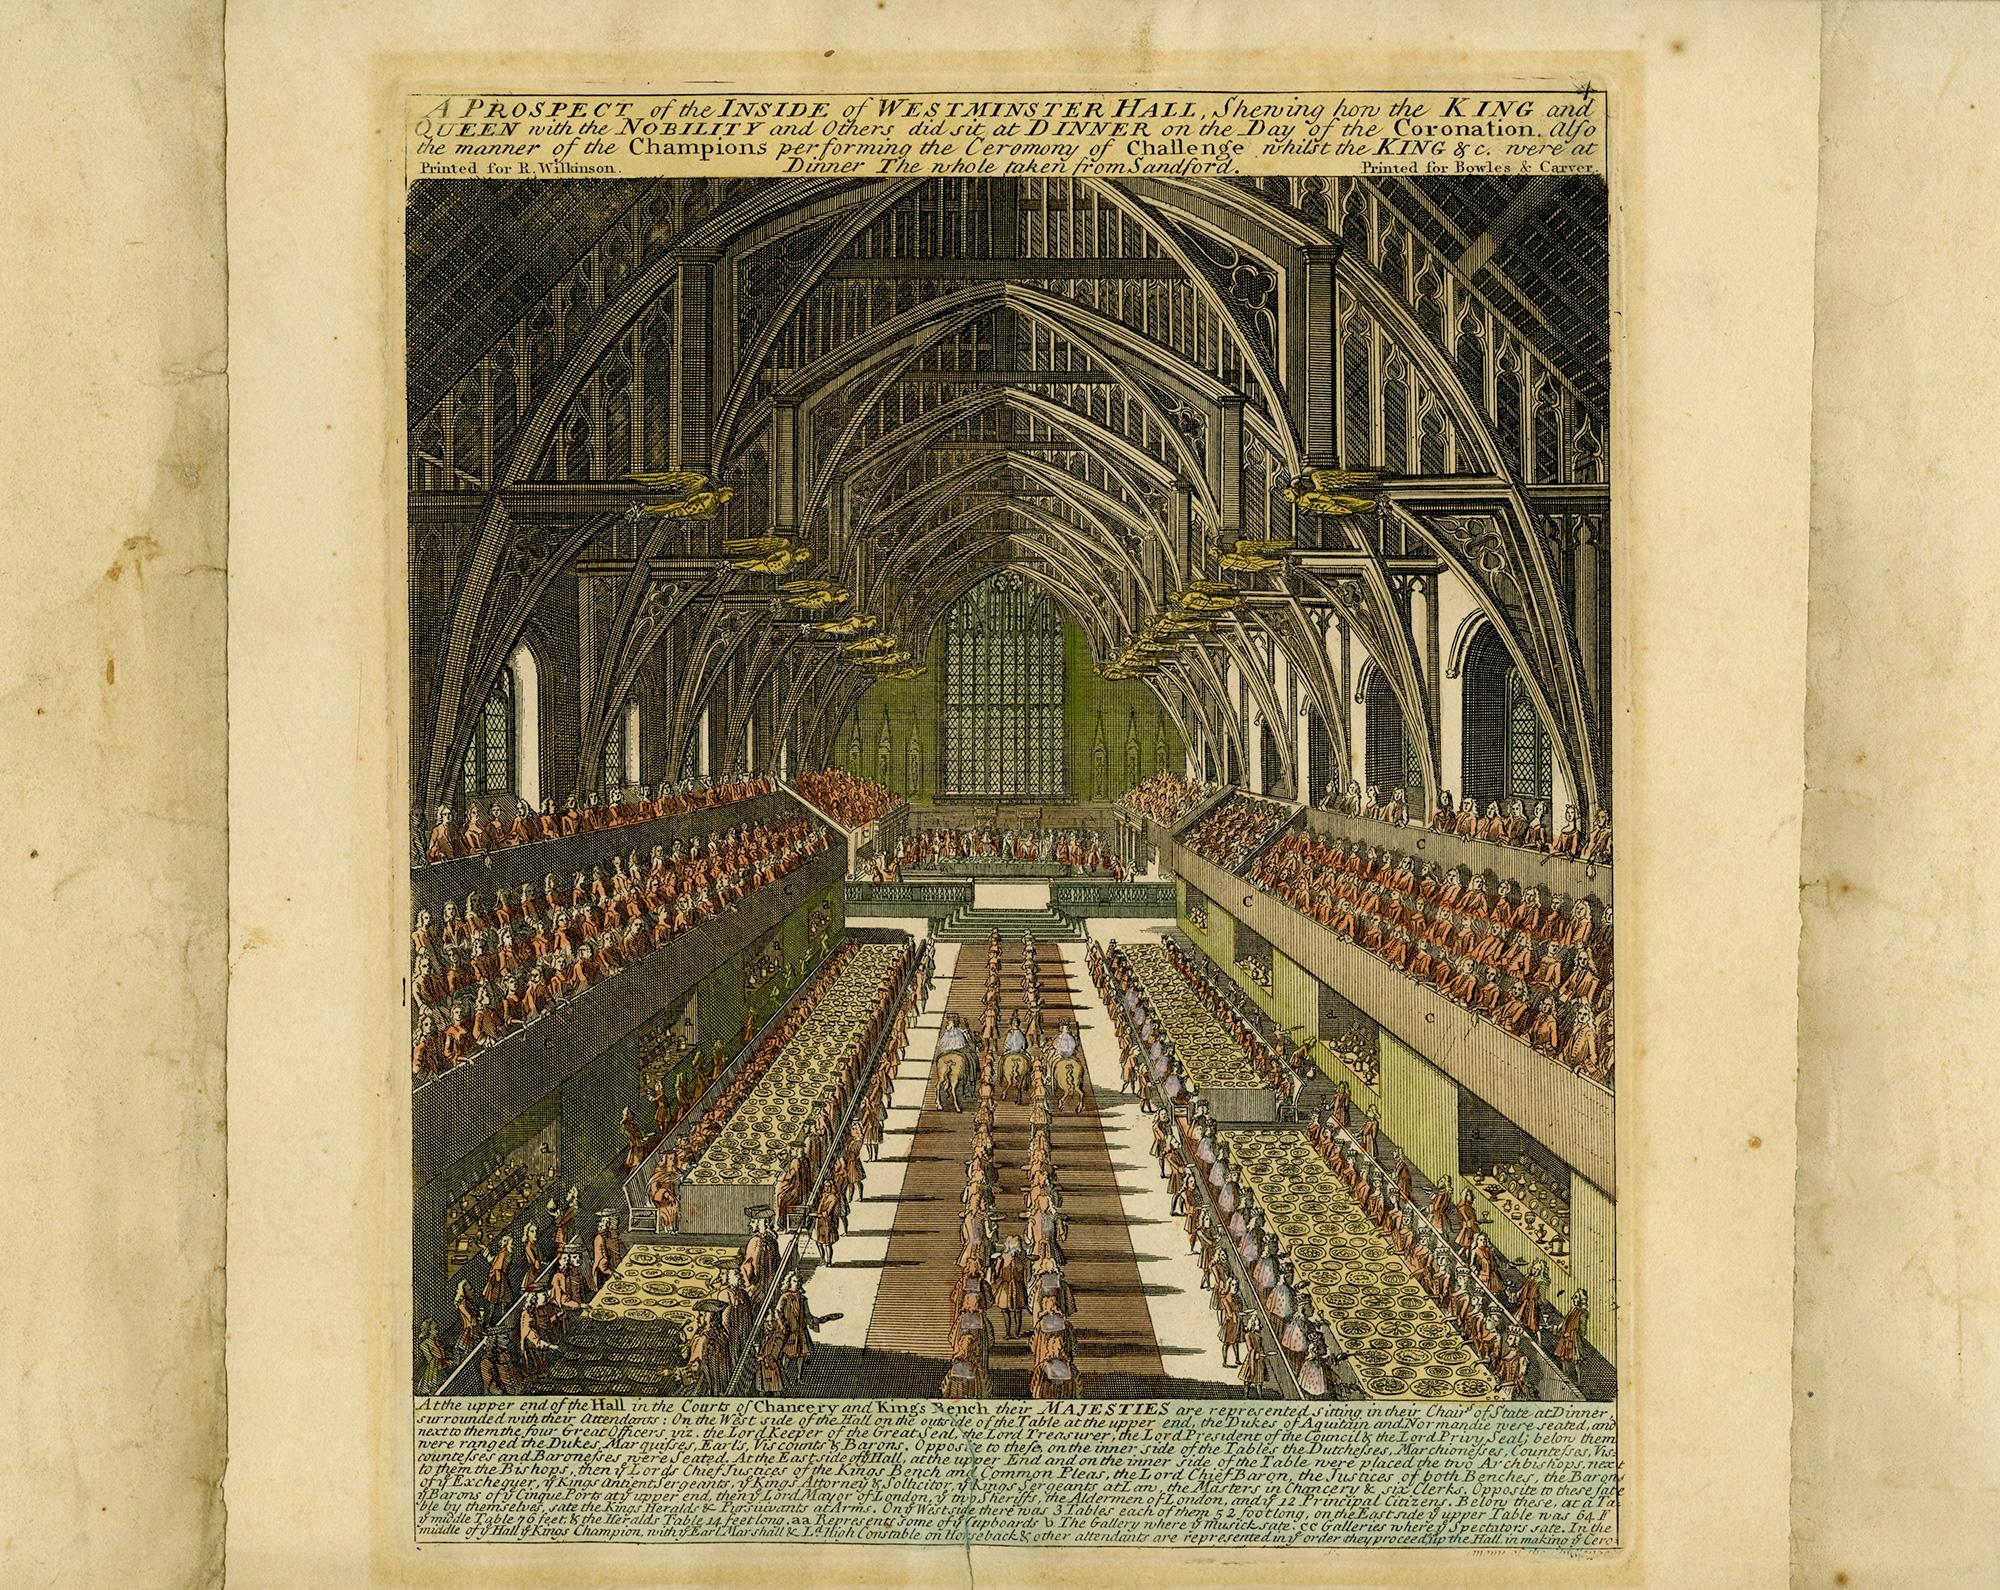 4
A PROSPECT of the INSIDE of WESTMINSTER HALL, Shewing how the KING and
QUEEN with the NOBILITY and Others did sit at DINNER on the Day of the Coronation, Also
the manner of the Champions performing the Ceromony of Challenge whilst the KING & c. were at
Printed for R. Wilkinson. Dinner The whole taken from Sandford. Printed for Bowles & Carver.
c
c
c
c
c
a
a
a
a
a
a
At the upper end of the Hall in the Courts of Chancery and King's Bench their MAJESTIES are represented sitting in their Chairs of State at Dinner,
surrounded with their Attendants: On the West side of the Hall on the outside of the Table at the upper end, the Dukes of Aquitain and Normandie were seated, and
next to them the four Great Officers viz. the Lord Keeper of the Great Seal, the Lord Treasurer, the Lord President of the Council & the Lord Privy Seal; below them
were ranged the Dukes, Marquisses, Earls, Viscounts & Barons. Opposite to these, on the inner side of the Tables the Dutchesses, Marchionesses, Countesses, Vis-
countesses and Baronesses were Seated. At the East side of y Hall, at the upper End and on the inner side of the Table were placed the two Archbishops, next
to them the Bishops, then y Lords Chief Justices of the Kings Bench and Common Pleas, the Lord Chief Baron, the Justices of both Benches, the Barons
of y Exchequer, y Kings Antient Sergeants, y Kings Attorney & Sollicitor, y Kings Sergeants at Law, the Masters in Chancery & six Clerks. Opposite to these sate
y Barons of y Cinque Ports at y upper end, then y Lord Mayor of London, y two Sheriffs, the Aldermen of London, and y 12 Principal Citizens. Below these, at a Ta-
ble by themselves, sate the Kings Heralds & Pursuivants at Arms. On y West side there was 3 Tables each of them 52 foot long, on the East side y upper Table was 64 f
y middle Table 76 feet, & the Heralds Table 14 feet long. aa Represents some of y Cupboards b. The Gallery where y Musick sate. cc Galleries where y Spectators sate. In the
middle of y Hall y Kings Champion, with y Earl Marshall & Ld High Constable on Horseback & other attendants are represented in y order they proceed up the Hall in making y Cero-